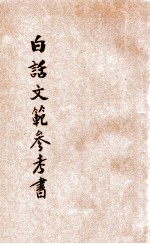 白話文範參考書